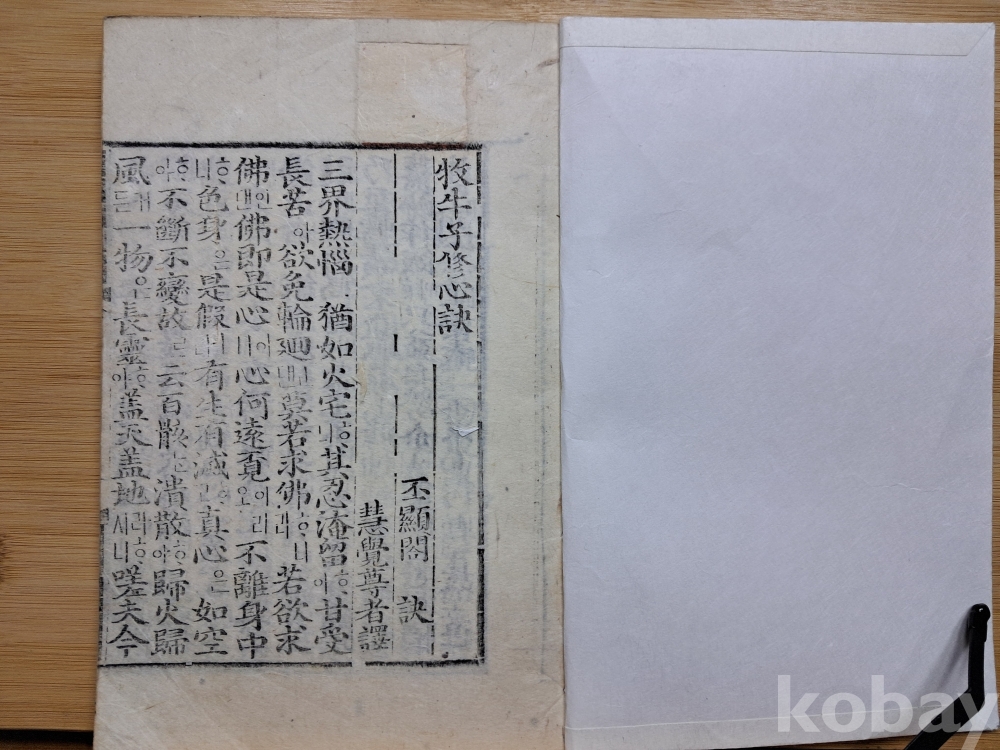 牧牛子修心訣
丕顯閤 訣
慧覺尊者譯
三界熱惱 猶如火宅 其忍淹留 甘受
長苦아 欲免輪廻 莫若求佛 若欲求
佛인댄 佛即是心이니 心何遠覓이리오 不離身中
ᄒᆞ니 色身은 是假 有生有滅ᄒᆞ고 真心은 如空
ᄒᆞ야 不斷不變故로 云百骸 潰散ᄒᆞ야 歸火歸
風 一物은 長靈ᄒᆞ야 蓋天蓋地라ᄒᆞ시니 嗟夫今
kobay